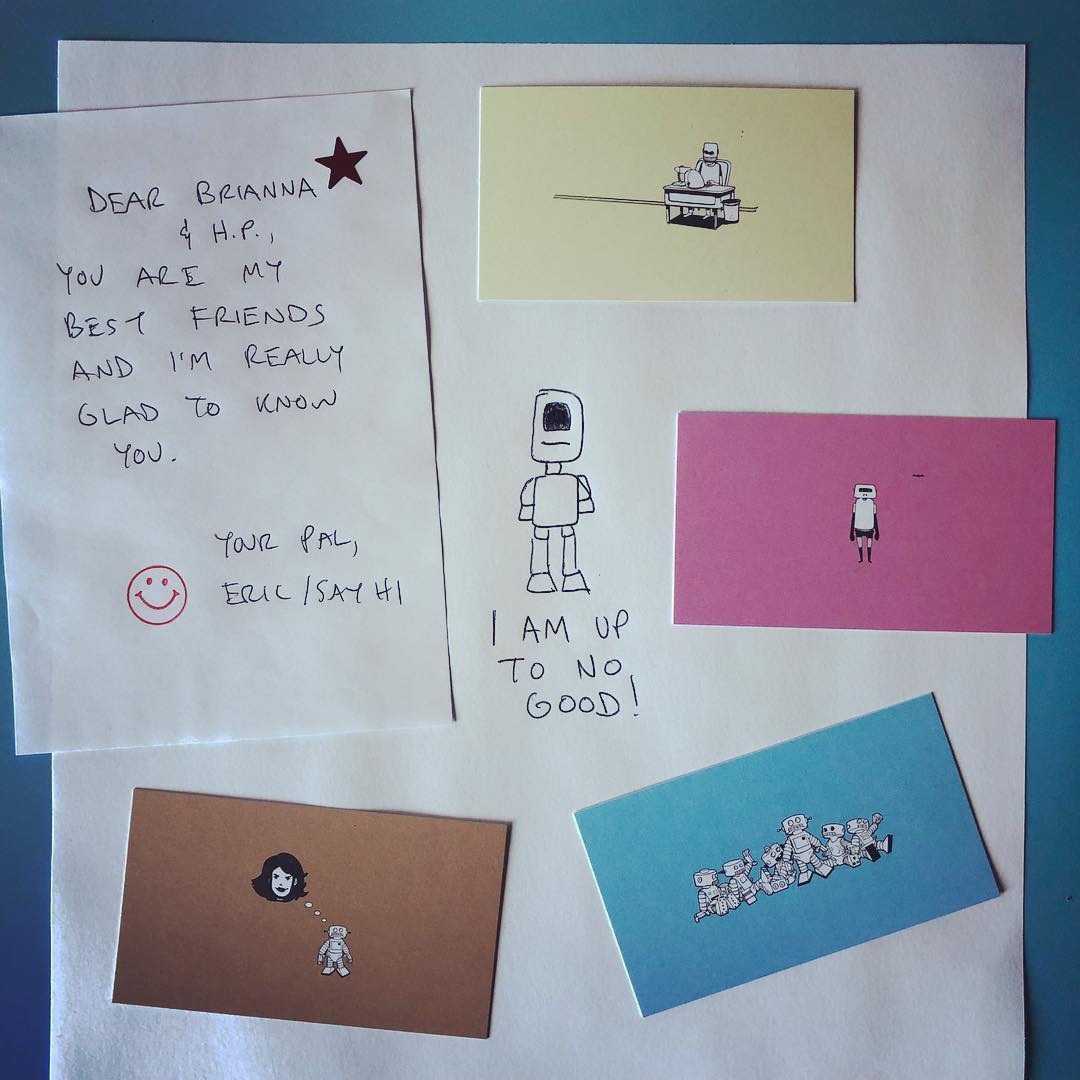 DEAR BRIANNA
& H.P.,
YOU ARE MY
BEST FRIENDS
AND I'M REALLY
GLAD TO KNOW
YOU.
YOUR PAL,
ERIC/SAY HI
I AM UP
TO NO
GOOD!